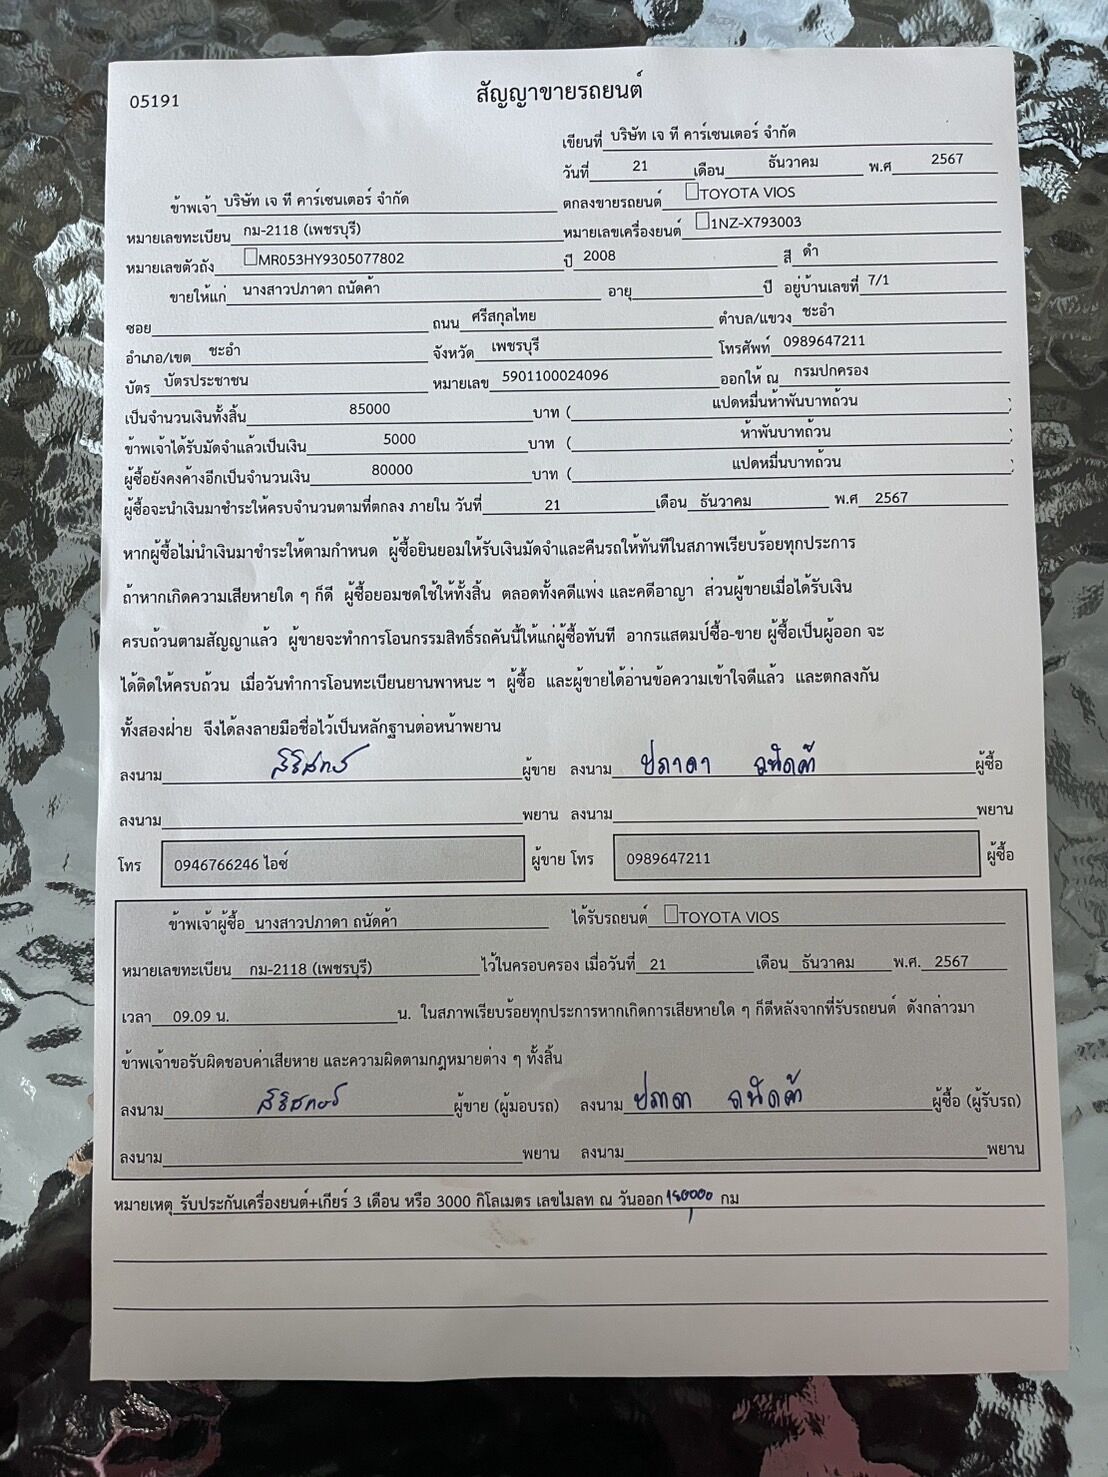 05191
สัญญาขายรถยนต์
เขียนที่ บริษัท เจ ที คาร์เซนเตอร์ จำกัด
วันที่ 21 เดือน ธันวาคม พ.ศ 2567
ข้าพเจ้า บริษัท เจ ที คาร์เซนเตอร์ จำกัด ตกลงขายรถยนต์ TOYOTA VIOS
หมายเลขทะเบียน กม-2118 (เพชรบุรี) หมายเลขเครื่องยนต์ 1NZ-X793003
หมายเลขตัวถัง MR053HY9305077802 ปี 2008 สี ดำ
ขายให้แก่ นางสาวปภาดา ถนัดค้า อายุ ปี อยู่บ้านเลขที่ 7/1
ซอย ถนน ศรีสกุลไทย ตำบล/แขวง ชะอำ
อำเภอ/เขต ชะอำ จังหวัด เพชรบุรี โทรศัพท์ 0989647211
บัตร บัตรประชาชน หมายเลข 5901100024096 ออกให้ ณ กรมปกครอง
เป็นจำนวนเงินทั้งสิ้น 85000 บาท ( แปดหมื่นห้าพันบาทถ้วน )
ข้าพเจ้าได้รับมัดจำแล้วเป็นเงิน 5000 บาท ( ห้าพันบาทถ้วน )
ผู้ซื้อยังคงค้างอีกเป็นจำนวนเงิน 80000 บาท ( แปดหมื่นบาทถ้วน )
ผู้ซื้อจะนำเงินมาชำระให้ครบจำนวนตามที่ตกลง ภายใน วันที่ 21 เดือน ธันวาคม พ.ศ 2567
หากผู้ซื้อไม่นำเงินมาชำระให้ตามกำหนด ผู้ซื้อยินยอมให้รับเงินมัดจำและคืนรถให้ทันทีในสภาพเรียบร้อยทุกประการ
ถ้าหากเกิดความเสียหายใด ๆ ก็ดี ผู้ซื้อยอมชดใช้ให้ทั้งสิ้น ตลอดทั้งคดีแพ่ง และคดีอาญา ส่วนผู้ขายเมื่อได้รับเงิน
ครบถ้วนตามสัญญาแล้ว ผู้ขายจะทำการโอนกรรมสิทธิ์รถคันนี้ให้แก่ผู้ซื้อทันที อากรแสตมป์ซื้อ-ขาย ผู้ซื้อเป็นผู้ออก จะ
ได้ติดให้ครบถ้วน เมื่อวันทำการโอนทะเบียนยานพาหนะ ฯ ผู้ซื้อ และผู้ขายได้อ่านข้อความเข้าใจดีแล้ว และตกลงกัน
ทั้งสองฝ่าย จึงได้ลงลายมือชื่อไว้เป็นหลักฐานต่อหน้าพยาน
ลงนาม ผู้ขาย ลงนาม ปภาดา ถนัดค้า ผู้ซื้อ
ลงนาม พยาน ลงนาม พยาน
โทร 0946766246 ไอซ์ ผู้ขาย โทร 0989647211 ผู้ซื้อ
ข้าพเจ้าผู้ซื้อ นางสาวปภาดา ถนัดค้า ได้รับรถยนต์ TOYOTA VIOS
หมายเลขทะเบียน กม-2118 (เพชรบุรี) ไว้ในครอบครอง เมื่อวันที่ 21 เดือน ธันวาคม พ.ศ. 2567
เวลา 09.09 น. น. ในสภาพเรียบร้อยทุกประการหากเกิดการเสียหายใด ๆ ก็ดีหลังจากที่รับรถยนต์ ดังกล่าวมา
ข้าพเจ้าขอรับผิดชอบค่าเสียหาย และความผิดตามกฎหมายต่าง ๆ ทั้งสิ้น
ลงนาม ผู้ขาย (ผู้มอบรถ) ลงนาม ปภาดา ถนัดค้า ผู้ซื้อ (ผู้รับรถ)
ลงนาม พยาน ลงนาม พยาน
หมายเหตุ รับประกันเครื่องยนต์+เกียร์ 3 เดือน หรือ 3000 กิโลเมตร เลขไมลท ณ วันออก กม